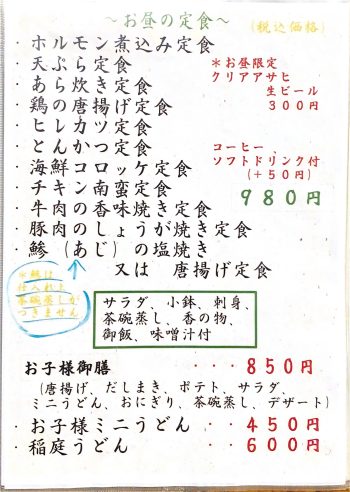 ～お昼の定食～
(税込価格)
・ホルモン煮込み定食
・天ぷら定食
・あら炊き定食
・鶏の唐揚げ定食
・ヒレカツ定食
・とんかつ定食
・海鮮コロッケ定食
・チキン南蛮定食
・牛肉の香味焼き定食
・豚肉のしょうが焼き定食
・鯵（あじ）の塩焼き
又は 唐揚げ定食
＊お昼限定
クリアアサヒ
生ビール
300円
コーヒー、
ソフトドリンク付
(+50円)
980円
茶碗蒸しが
つきません
サラダ、小鉢、刺身、
茶碗蒸し、香の物、
御飯、味噌汁付
お子様御膳 ・・・850円
(唐揚げ、だしまき、ポテト、サラダ、
ミニうどん、おにぎり、茶碗蒸し、デザート)
・お子様ミニうどん ・・・450円
・稲庭うどん ・・・600円